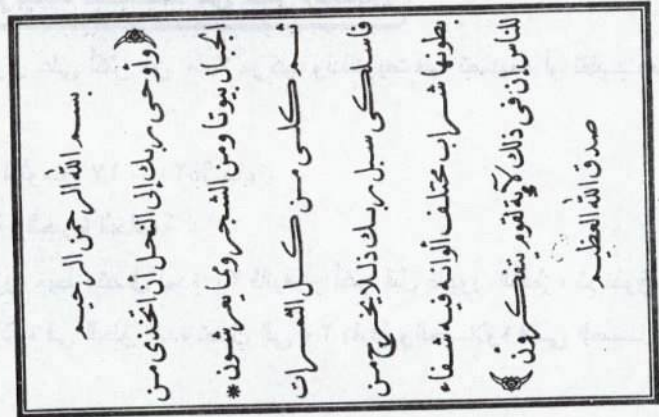 بسم الله الرحمن الرحيم
﴿وأوحى ربك إلى النحل أن اتخذى من
الجبال بيوتا ومن الشجر ومما يعرشون *
ثم كلى من كل الثمرات
فاسلكى سبل ربك ذللا يخرج من
بطونها شراب مختلف ألوانه فيه شفاء
للناس إن فى ذلك لآية لقوم يتفكرون﴾
صدق الله العظيم